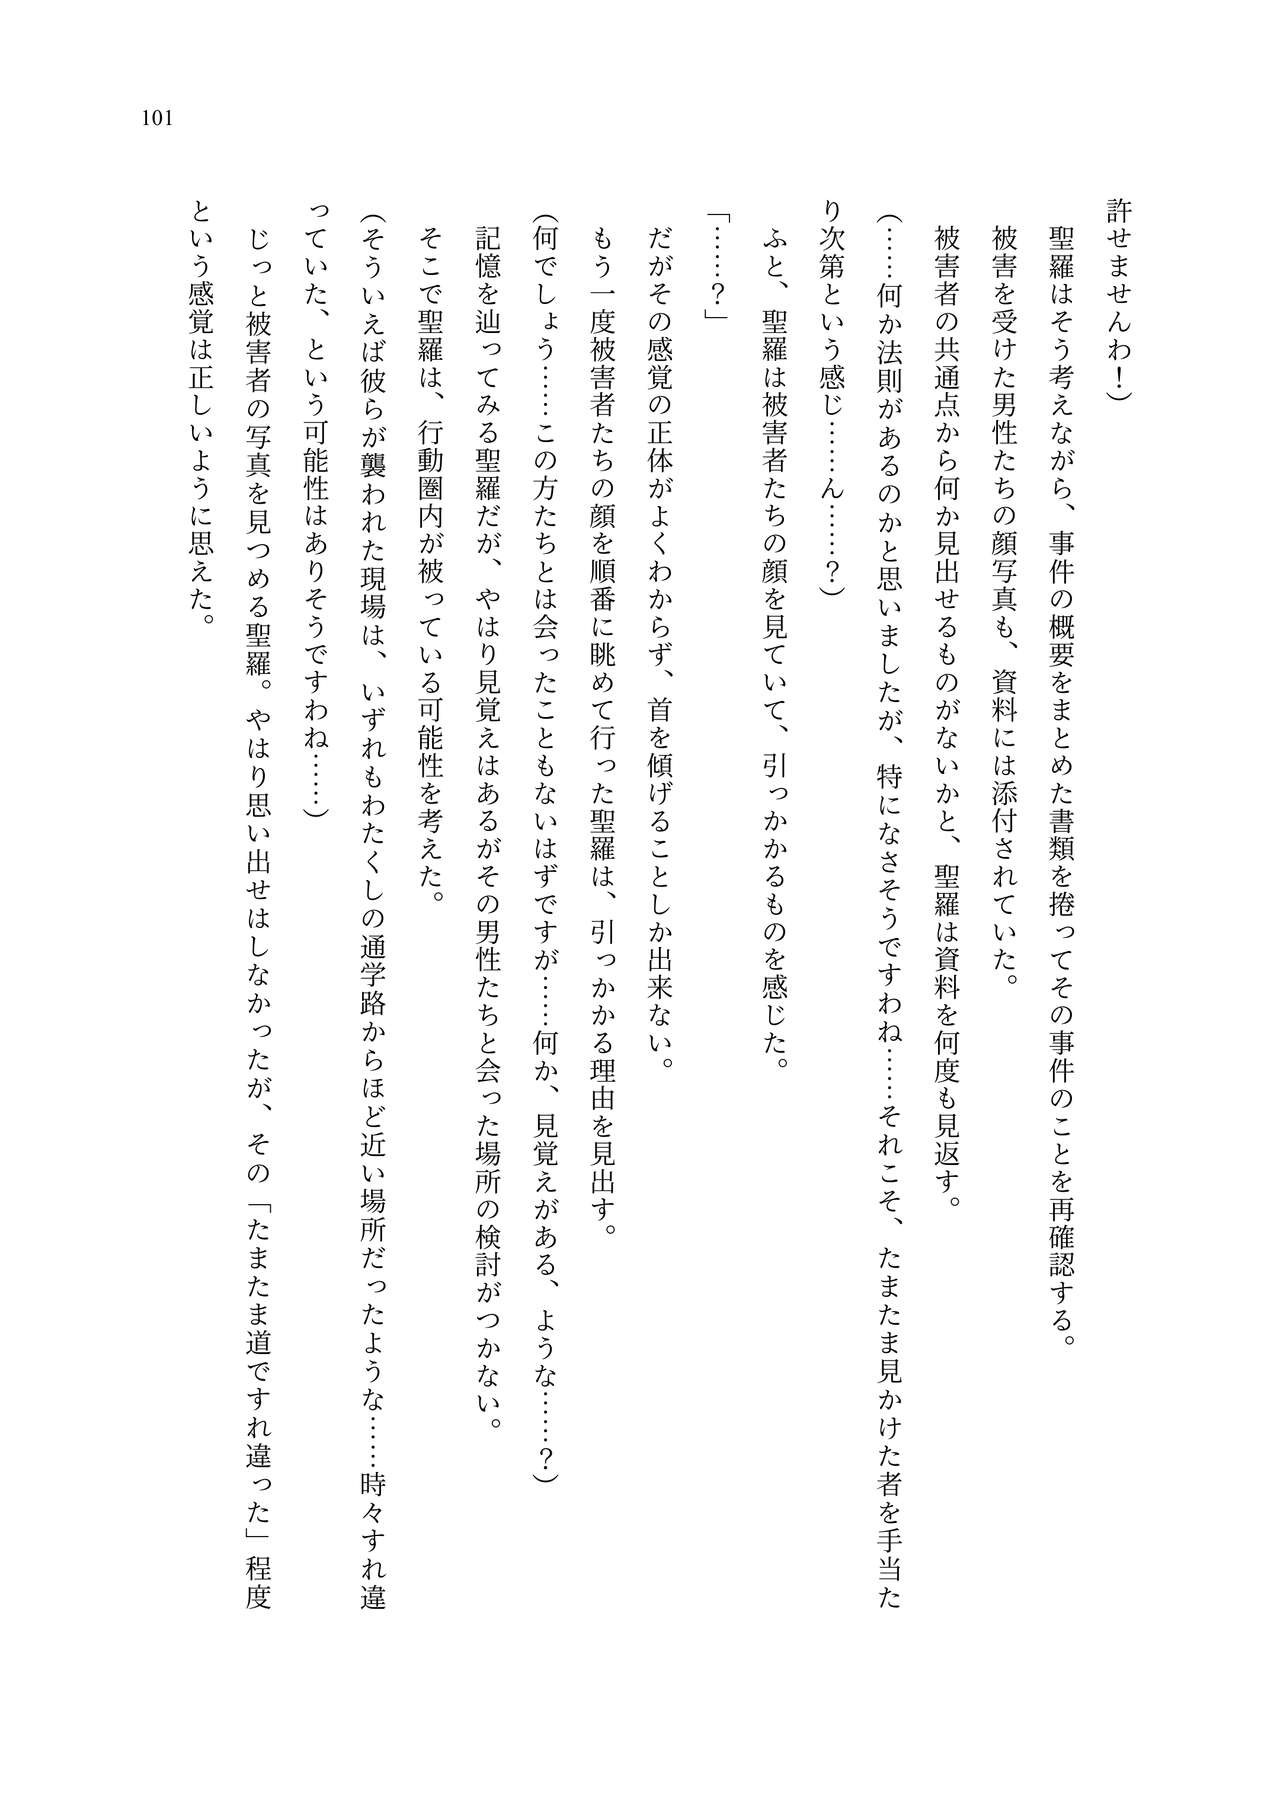 101
許せませんわ！）
聖羅はそう考えながら、事件の概要をまとめた書類を捲ってその事件のことを再確認する。
被害を受けた男性たちの顔写真も、資料には添付されていた。
被害者の共通点から何か見出せるものがないかと、聖羅は資料を何度も見返す。
（……何か法則があるのかと思いましたが、特になさそうですわね……それこそ、たまたま見かけた者を手当た
り次第という感じ……ん……？）
ふと、聖羅は被害者たちの顔を見ていて、引っかかるものを感じた。
「……？」
だがその感覚の正体がよくわからず、首を傾げることしか出来ない。
もう一度被害者たちの顔を順番に眺めて行った聖羅は、引っかかる理由を見出す。
（何でしょう……この方たちとは会ったこともないはずですが……何か、見覚えがある、ような……？）
記憶を辿ってみる聖羅だが、やはり見覚えはあるがその男性たちと会った場所の検討がつかない。
そこで聖羅は、行動圏内が被っている可能性を考えた。
（そういえば彼らが襲われた現場は、いずれもわたくしの通学路からほど近い場所だったような……時々すれ違
っていた、という可能性はありそうですわね……）
じっと被害者の写真を見つめる聖羅。やはり思い出せはしなかったが、その「たまたま道ですれ違った」程度
という感覚は正しいように思えた。